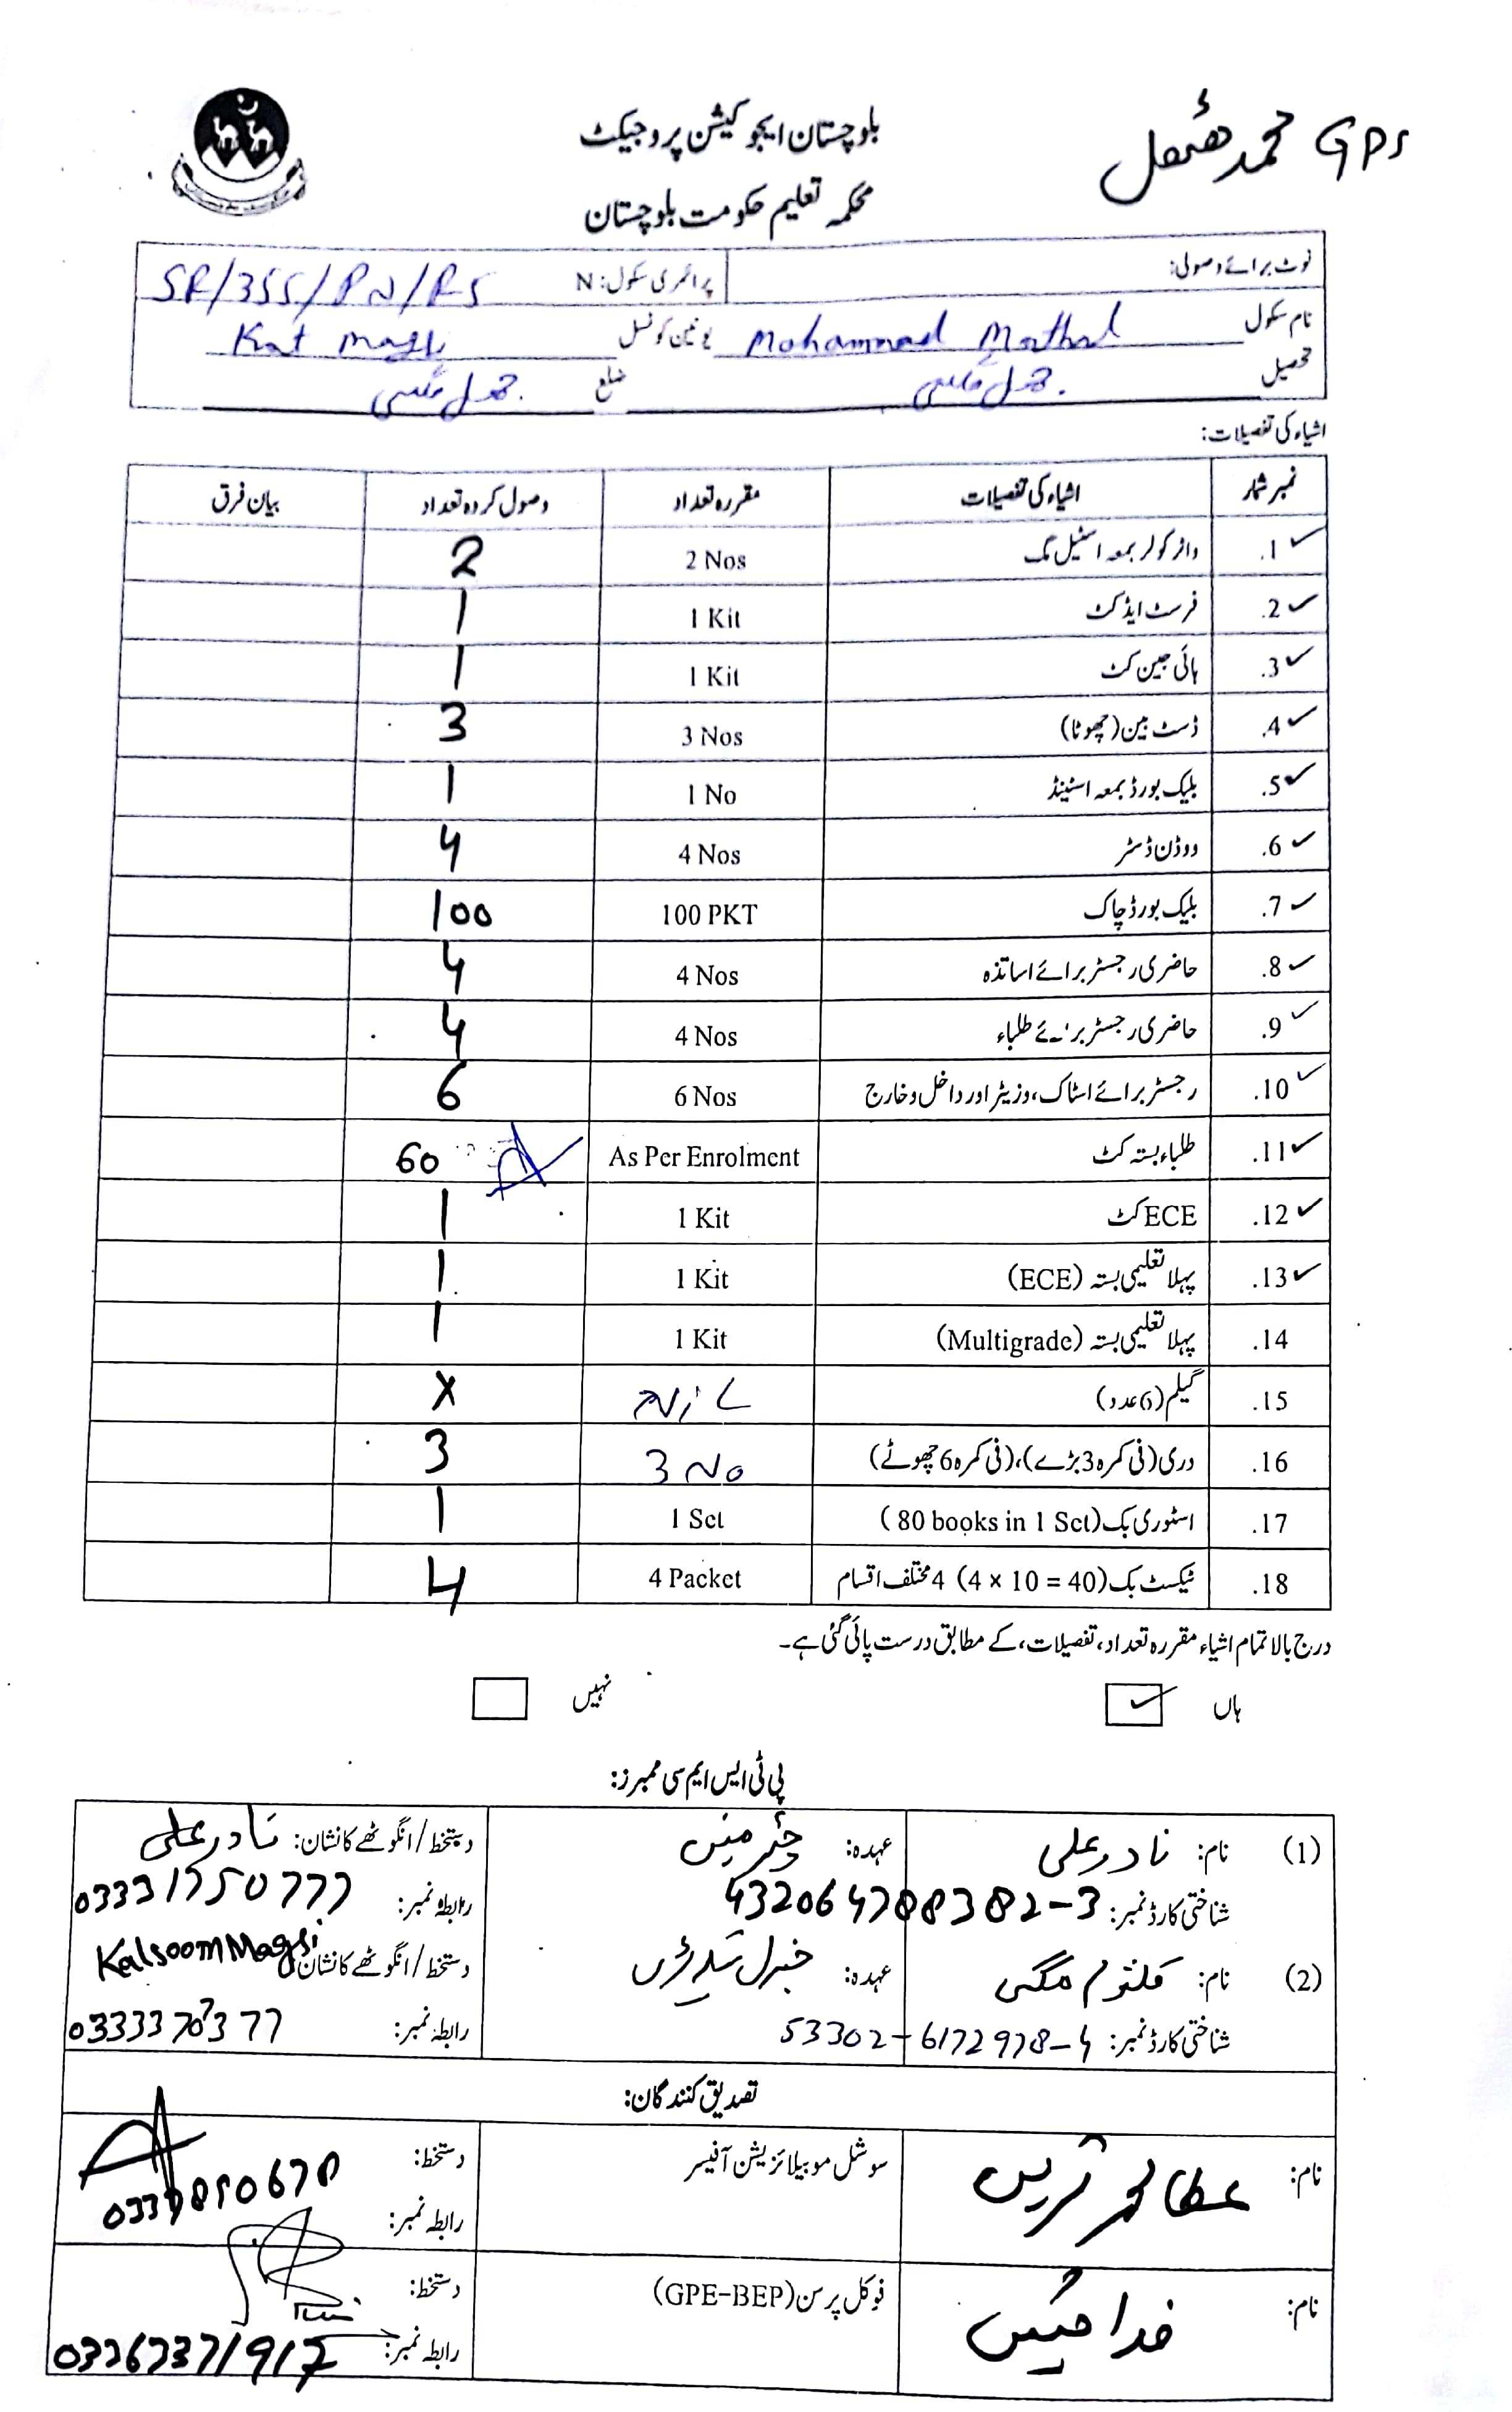 GPS محمد مٹھل
بلوچستان ایجوکیشن پروجیکٹ
محکمہ تعلیم حکومت بلوچستان
نوٹ برائے وصولی:
پرائمری سکول: N SR/355/PN/RS
نام سکول Mohammad Mothal یونین کونسل Kot Magsi
تحصیل جھل مگسی ضلع جھل مگسی
اشیاء کی تفصیلات:
نمبر شمار اشیاء کی تفصیلات مقررہ تعداد وصول کردہ تعداد بیان فرق
1. واٹر کولر بمعہ اسٹیل مگ 2 Nos 2
2. فرسٹ ایڈ کٹ 1 Kit 1
3. ہائی جین کٹ 1 Kit 1
4. ڈسٹ بین (چھوٹا) 3 Nos 3
5. بلیک بورڈ بمعہ اسٹینڈ 1 No 1
6. ووڈن ڈسٹر 4 Nos 4
7. بلیک بورڈ چاک 100 PKT 100
8. حاضری رجسٹر برائے اساتذہ 4 Nos 4
9. حاضری رجسٹر برائے طلباء 4 Nos 4
10. رجسٹر برائے اسٹاک، وزیٹر اور داخل و خارج 6 Nos 6
11. طلباء بستہ کٹ As Per Enrolment 60
12. ECE کٹ 1 Kit 1
13. پہلا تعلیمی بستہ (ECE) 1 Kit 1
14. پہلا تعلیمی بستہ (Multigrade) 1 Kit 1
15. گیلم (6 عدد) NiL X
16. دری (فی کمرہ 3 بڑے)، (فی کمرہ 6 چھوٹے) 3 No 3
17. اسٹوری بک (80 books in 1 Set) 1 Set 1
18. ٹیکسٹ بک (4 x 10 = 40) 4 مختلف اقسام 4 Packet 4
درج بالا تمام اشیاء مقررہ تعداد، تفصیلات، کے مطابق درست پائی گئی ہے۔
ہاں نہیں
پی ٹی ایس ایم سی ممبرز:
(1) نام: نادر علی عہدہ: چئرمین دستخط/انگوٹھے کا نشان: نادر علی
شناختی کارڈ نمبر: 432064788382-3 رابطہ نمبر: 03331750777
(2) نام: کلثوم مگسی عہدہ: جنرل سیکرٹری دستخط/انگوٹھے کا نشان Kalsoom Magsi
شناختی کارڈ نمبر: 53302-6172978-4 رابطہ نمبر: 0333370377
تصدیق کنندگان:
نام: عطا محمد سوشل موبیلائزیشن آفیسر دستخط:
رابطہ نمبر:
نام: فدا حسین فوکل پرسن (GPE-BEP) دستخط:
رابطہ نمبر: 03367371917